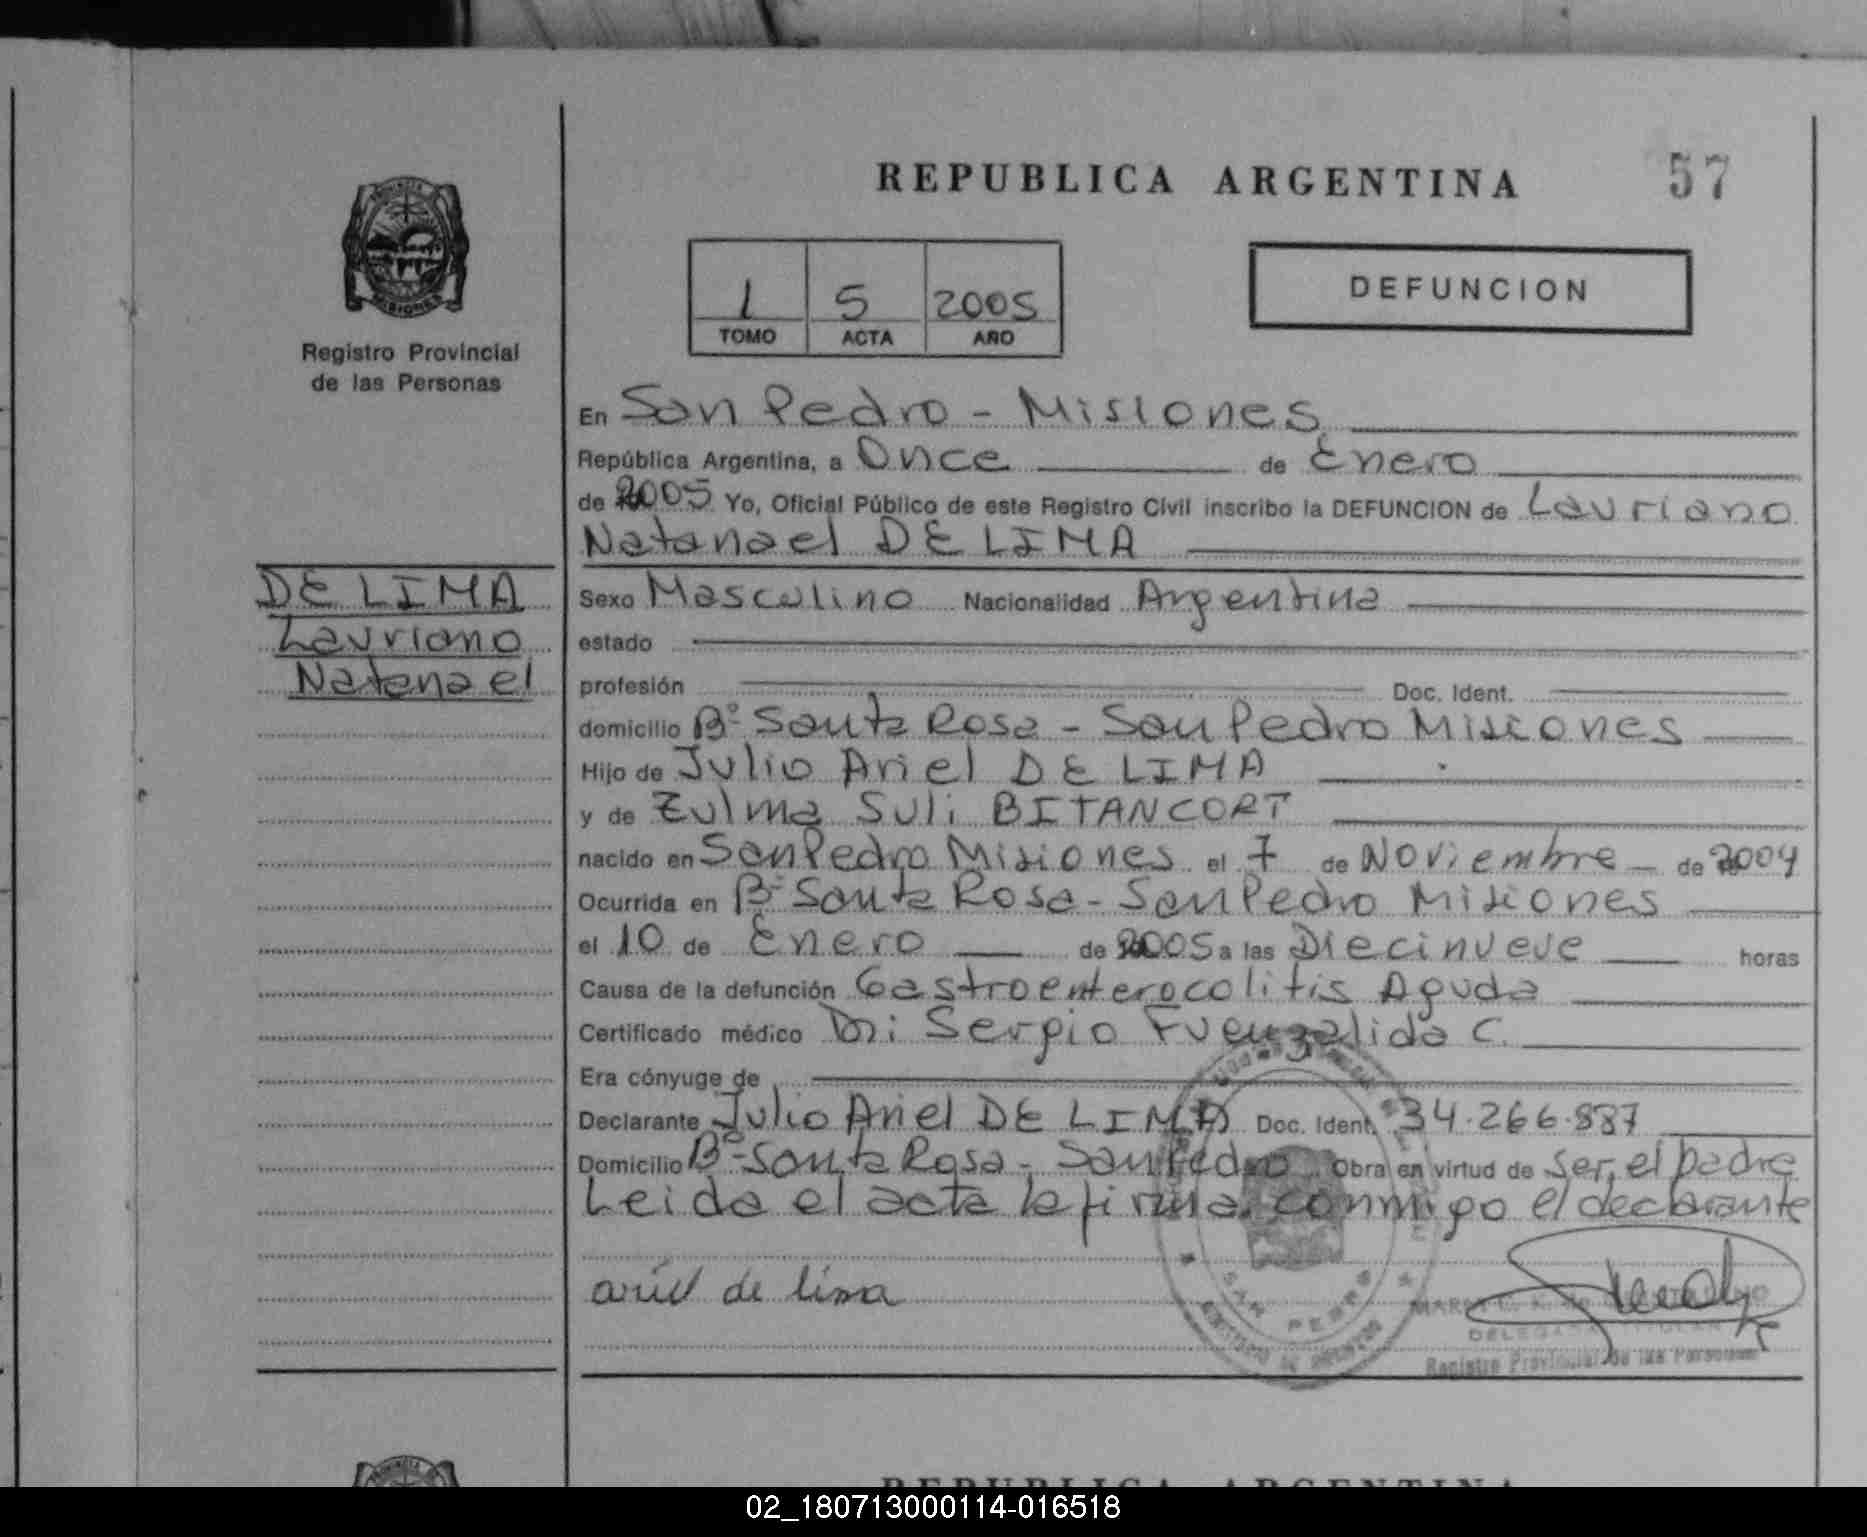 REPUBLICA ARGENTINA
57
PROVINCIA
MISIONES
Registro Provincial
de las Personas
1 5 2005
TOMO ACTA AÑO
DEFUNCION
En San Pedro - Misiones
República Argentina, a Once de Enero
de 2005 Yo, Oficial Público de este Registro Civil inscribo la DEFUNCION de Lauriano
Natanael DE LIMA
DE LIMA
Lauriano
Natanael
Sexo Masculino Nacionalidad Argentina
estado
profesión Doc. Ident.
domicilio Bº Santa Rosa - San Pedro Misiones
Hijo de Julio Ariel DE LIMA
y de Zulma Suli BITANCORT
nacido en San Pedro Misiones el 7 de Noviembre de 2004
Ocurrida en Bº Santa Rosa - San Pedro Misiones
el 10 de Enero de 2005 a las Diecinueve horas
Causa de la defunción Gastroenterocolitis Aguda
Certificado médico Dr: Sergio Fuenzalida C.
Era cónyuge de
Declarante Julio Ariel DE LIMA Doc. Ident. 34.266.887
Domicilio Bº Santa Rosa - San Pedro Obra en virtud de ser el padre
Leida el acta la firma conmigo el declarante
ariel de lima
SAN PEDRO
Registro Provincial de las Personas
REPUBLICA ARGENTINA
02_180713000114-016518